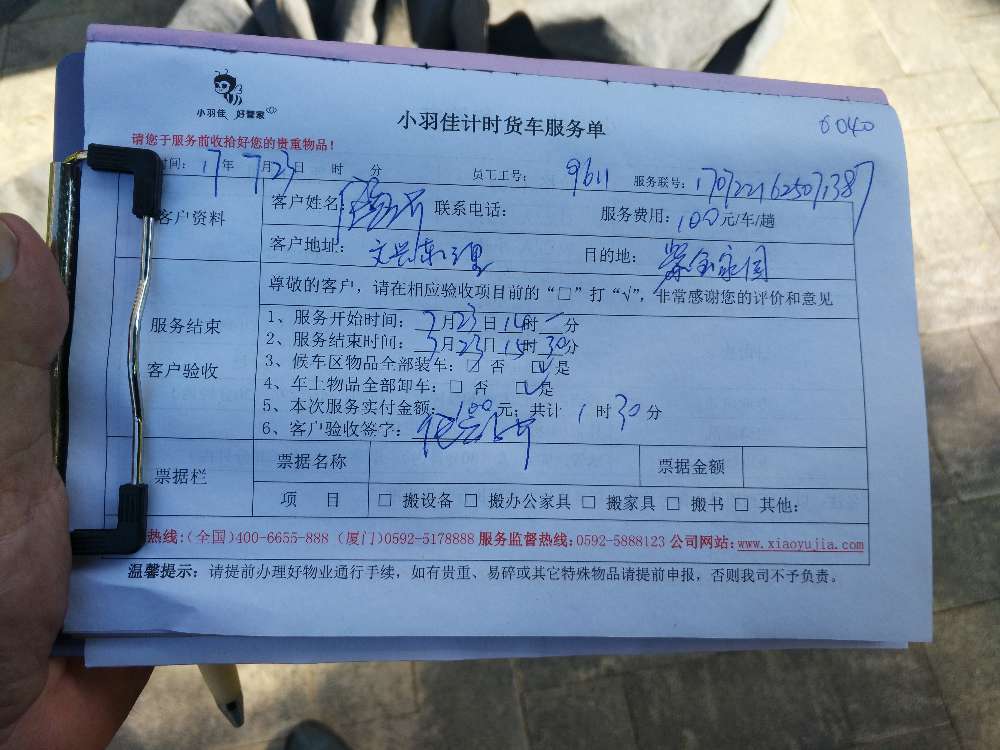 小羽佳 好管家
小羽佳计时货车服务单
6040
请您于服务前收拾好您的贵重物品！
时间: 17年7月23日 时 分 员工工号: 9611 服务联号:
客户资料
客户姓名 联系电话: 服务费用: 100元/车/趟
客户地址: 文兴东二里 目的地: 紫金家园
服务结束
客户验收
尊敬的客户，请在相应验收项目前的“□”打“√”，非常感谢您的评价和意见
1、服务开始时间: 7月23日14时 分
2、服务结束时间: 7月23日15时30分
3、候车区物品全部装车: □ 否 □ 是
4、车上物品全部卸车: □ 否 □ 是
5、本次服务实付金额: 100元; 共计 1 时30分
6、客户验收签字:
票据栏
票据名称 票据金额
项 目 □ 搬设备 □ 搬办公家具 □ 搬家具 □ 搬书 □ 其他:
热线:(全国)400-6655-888 (厦门)0592-5178888 服务监督热线:0592-5888123 公司网站:www.xiaoyujia.com
温馨提示: 请提前办理好物业通行手续，如有贵重、易碎或其它特殊物品请提前申报，否则我司不予负责。